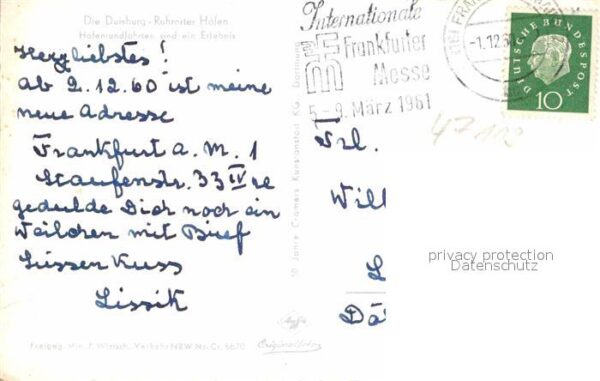 Die Duisburg-Ruhrorter Häfen
Hafenrundfahrten sind ein Erlebnis
Herzliebstes!
ab 2.12.60 ist meine
neue Adresse
Frankfurt a. M. 1
Staufenstr. 33 IV re
gedulde Dich noch ein
Weilchen mit Brief
Süssen Kuss
Lissik
Freigeg. Min. f. Wirtsch. Verkehr NRW Nr. Cr. 6670
50 Jahre Cramers Kunstanstalt KG Dortmund
Internationale
Frankfurter
Messe
5-9. März 1961
-1.12.60
DEUTSCHE BUNDESPOST
10
Frl.
Will
Dä
privacy protection
Datenschutz